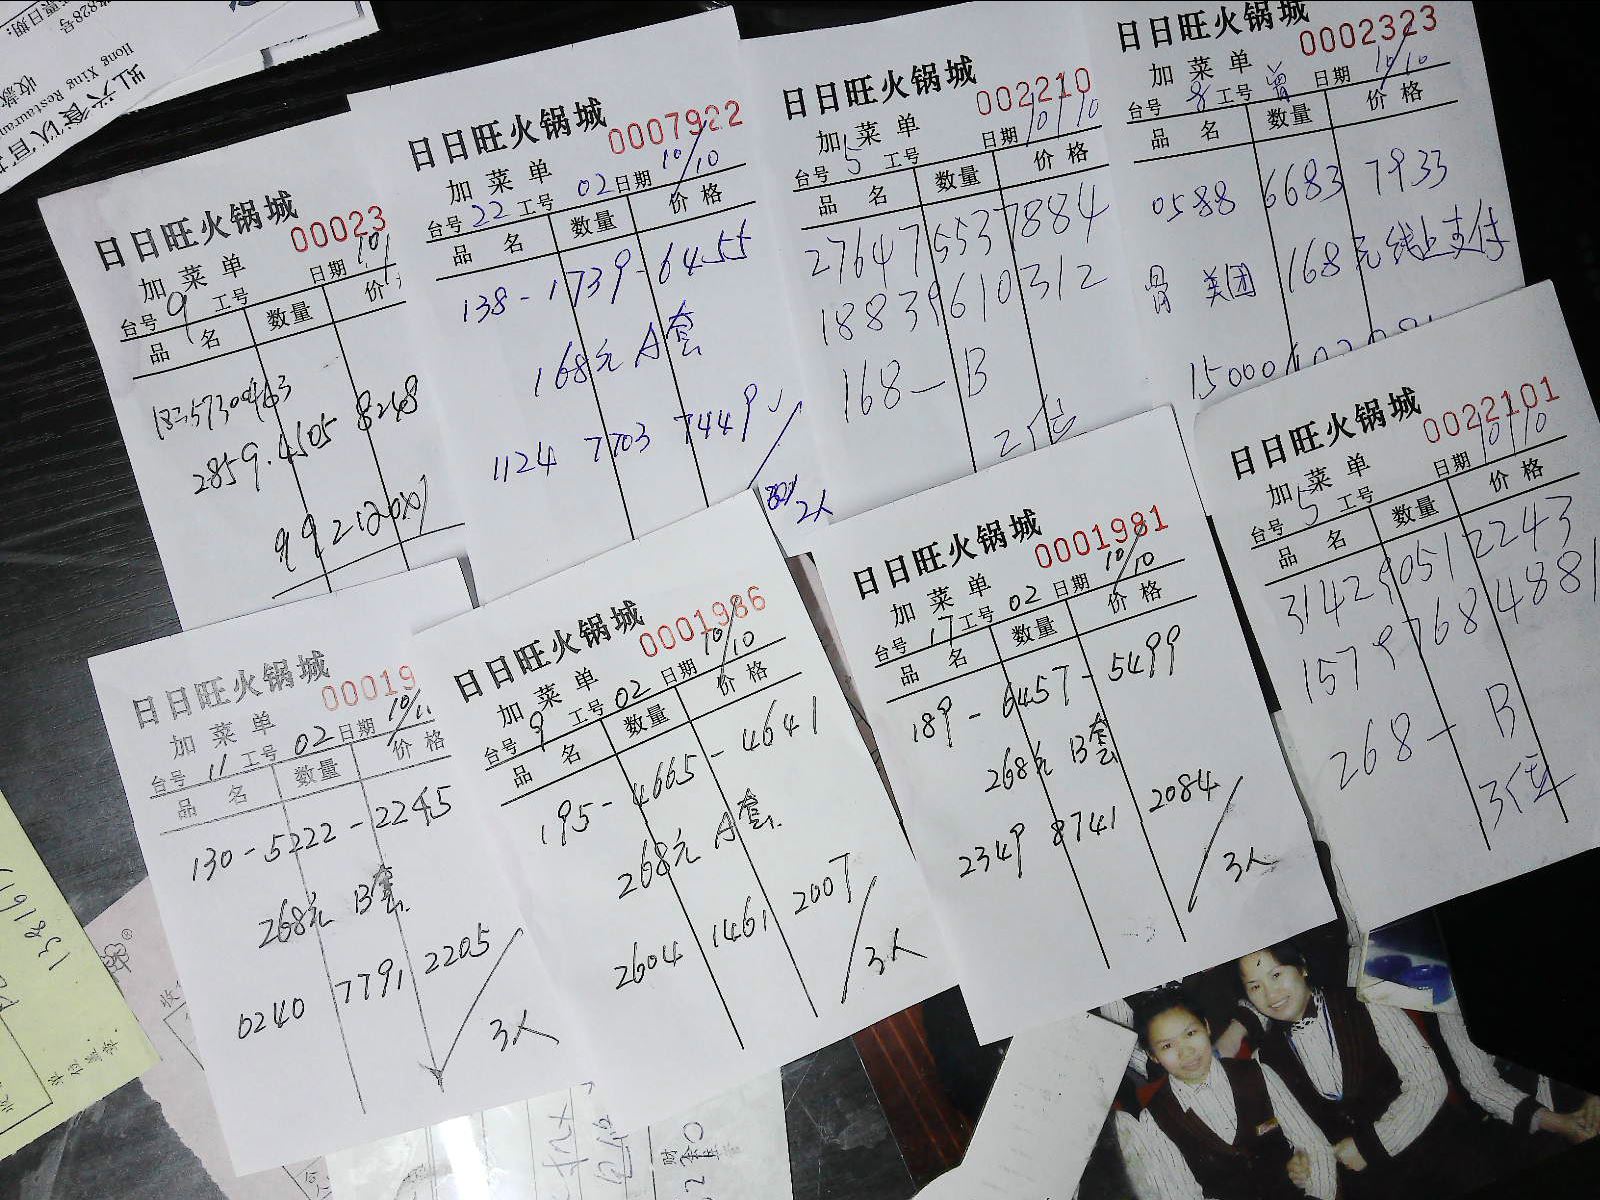 Hong Xing Restauran
收款
日日旺火锅城
00023
加菜单
日期 10/
台号 9 工号
品 名 数量 价
18357304463
2859.4505 8248
日日旺火锅城
0007922
加菜单
台号 22 工号 02 日期 10/10
品 名 数量 价格
138-1739-6455
168元 A套
1124 7703 7449
2人
日日旺火锅城
002210
加菜单
台号 5 工号 日期 10/10
品 名 数量 价格
27647 5537884
18839610312
168- B
2位
日日旺火锅城
0002323
加菜单
台号 8 工号 曾 日期 10/10
品 名 数量 价格
0588 6683 7933
美团 168元线上支付
日日旺火锅城
00019
加菜单
台号 11 工号 02 日期 10/
品 名 数量 价格
130-5222-2245
268元 B套
0240 7791 2205
3人
日日旺火锅城
0001986
加菜单
台号 9 工号 02 日期 10/10
品 名 数量 价格
195-4665-4641
268元 A套
2604 1461 2007
3人
日日旺火锅城
0001981
加菜单
台号 17 工号 02 日期 10/10
品 名 数量 价格
189-6457-5499
268元 B套
2349 8741 2084
3人
日日旺火锅城
0022101
加菜单
台号 5 工号 日期 10/10
品 名 数量 价格
31429051 2243
1579768 4881
268- B
3位